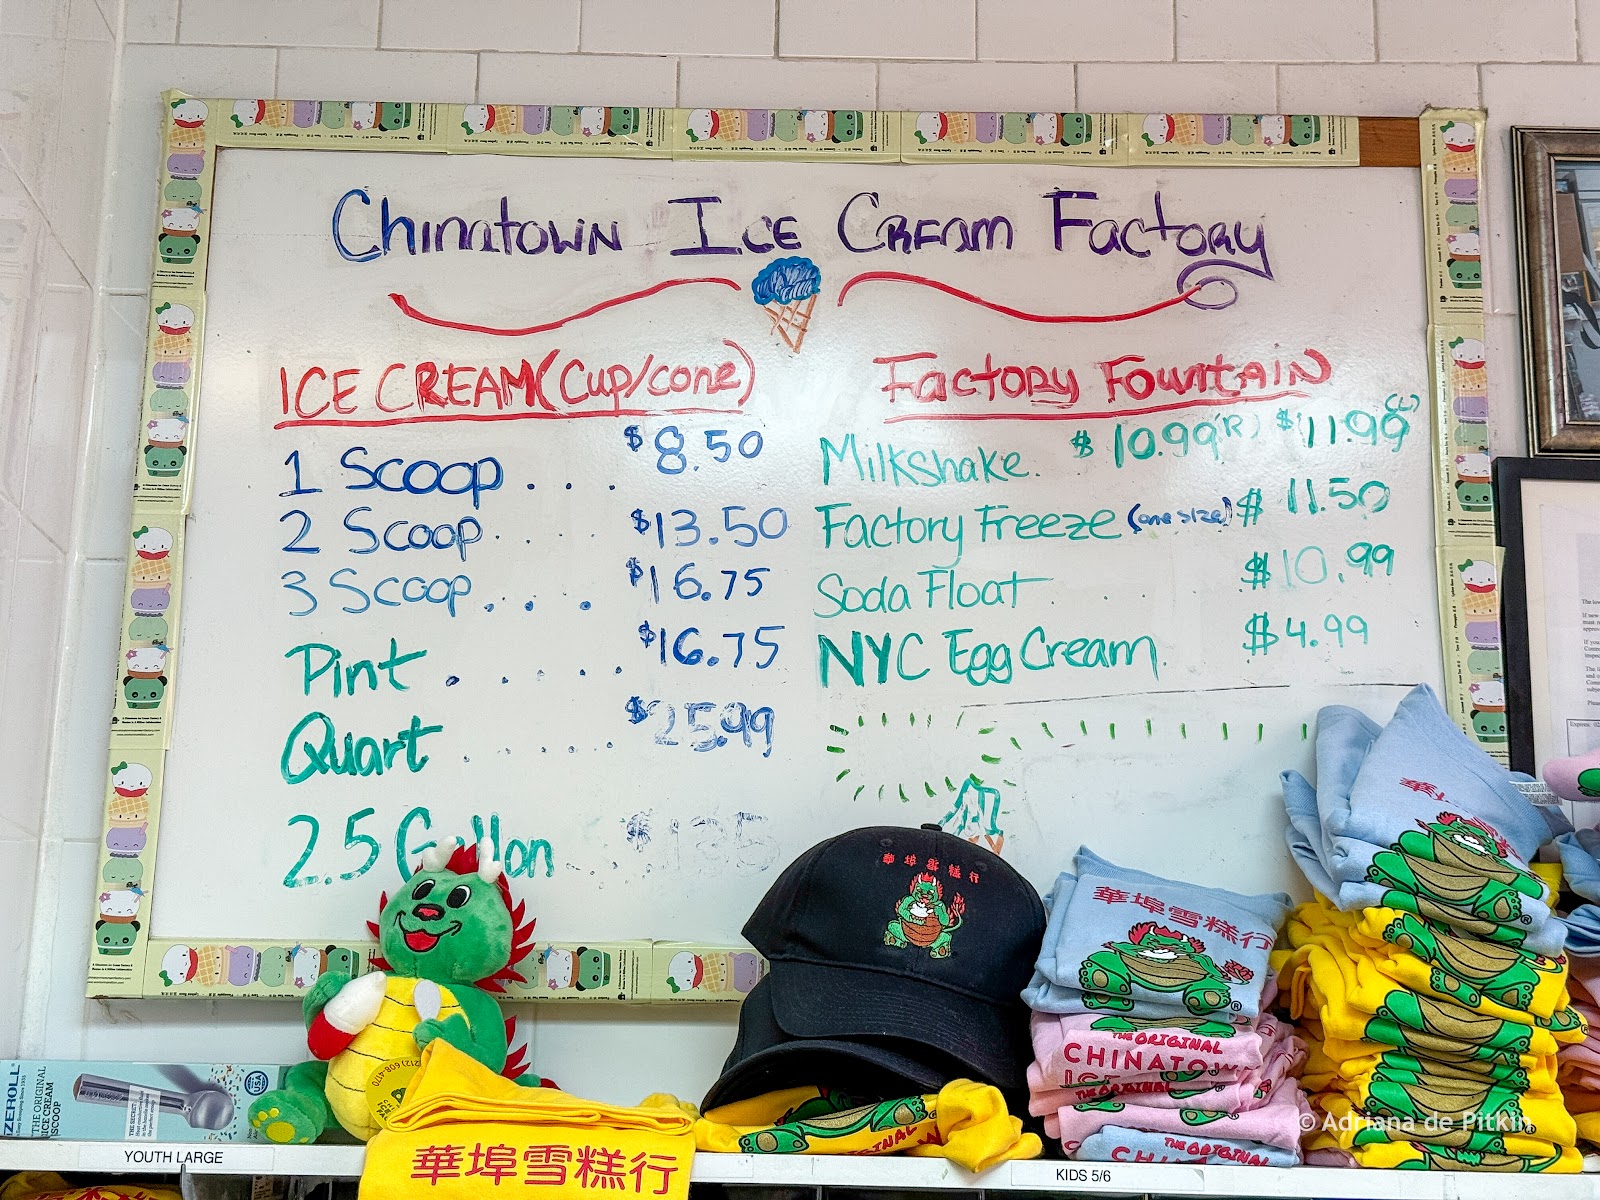 Chinatown Ice Cream Factory
ICE CREAM (Cup/cone)
1 Scoop .... $8.50
2 Scoop .... $13.50
3 Scoop .... $16.75
Pint ..... $16.75
Quart ...... $25.99
2.5 Gallon ... $135
Factory Fountain
Milkshake. $10.99(R) $11.99(L)
Factory Freeze (one size) $11.50
Soda Float . . . . $10.99
NYC Egg Cream. $4.99
華埠雪糕行
華埠雪糕行
THE ORIGINAL
CHINATOW
THE ORIGINAL
THE ORIGINAL
IZEROLL
THE ORIGINAL
ICE CREAM
SCOOP
THE SECRET
USA
(212) 608-4170
華埠雪糕行
YOUTH LARGE
KIDS 5/6
© Adriana de Pitkin